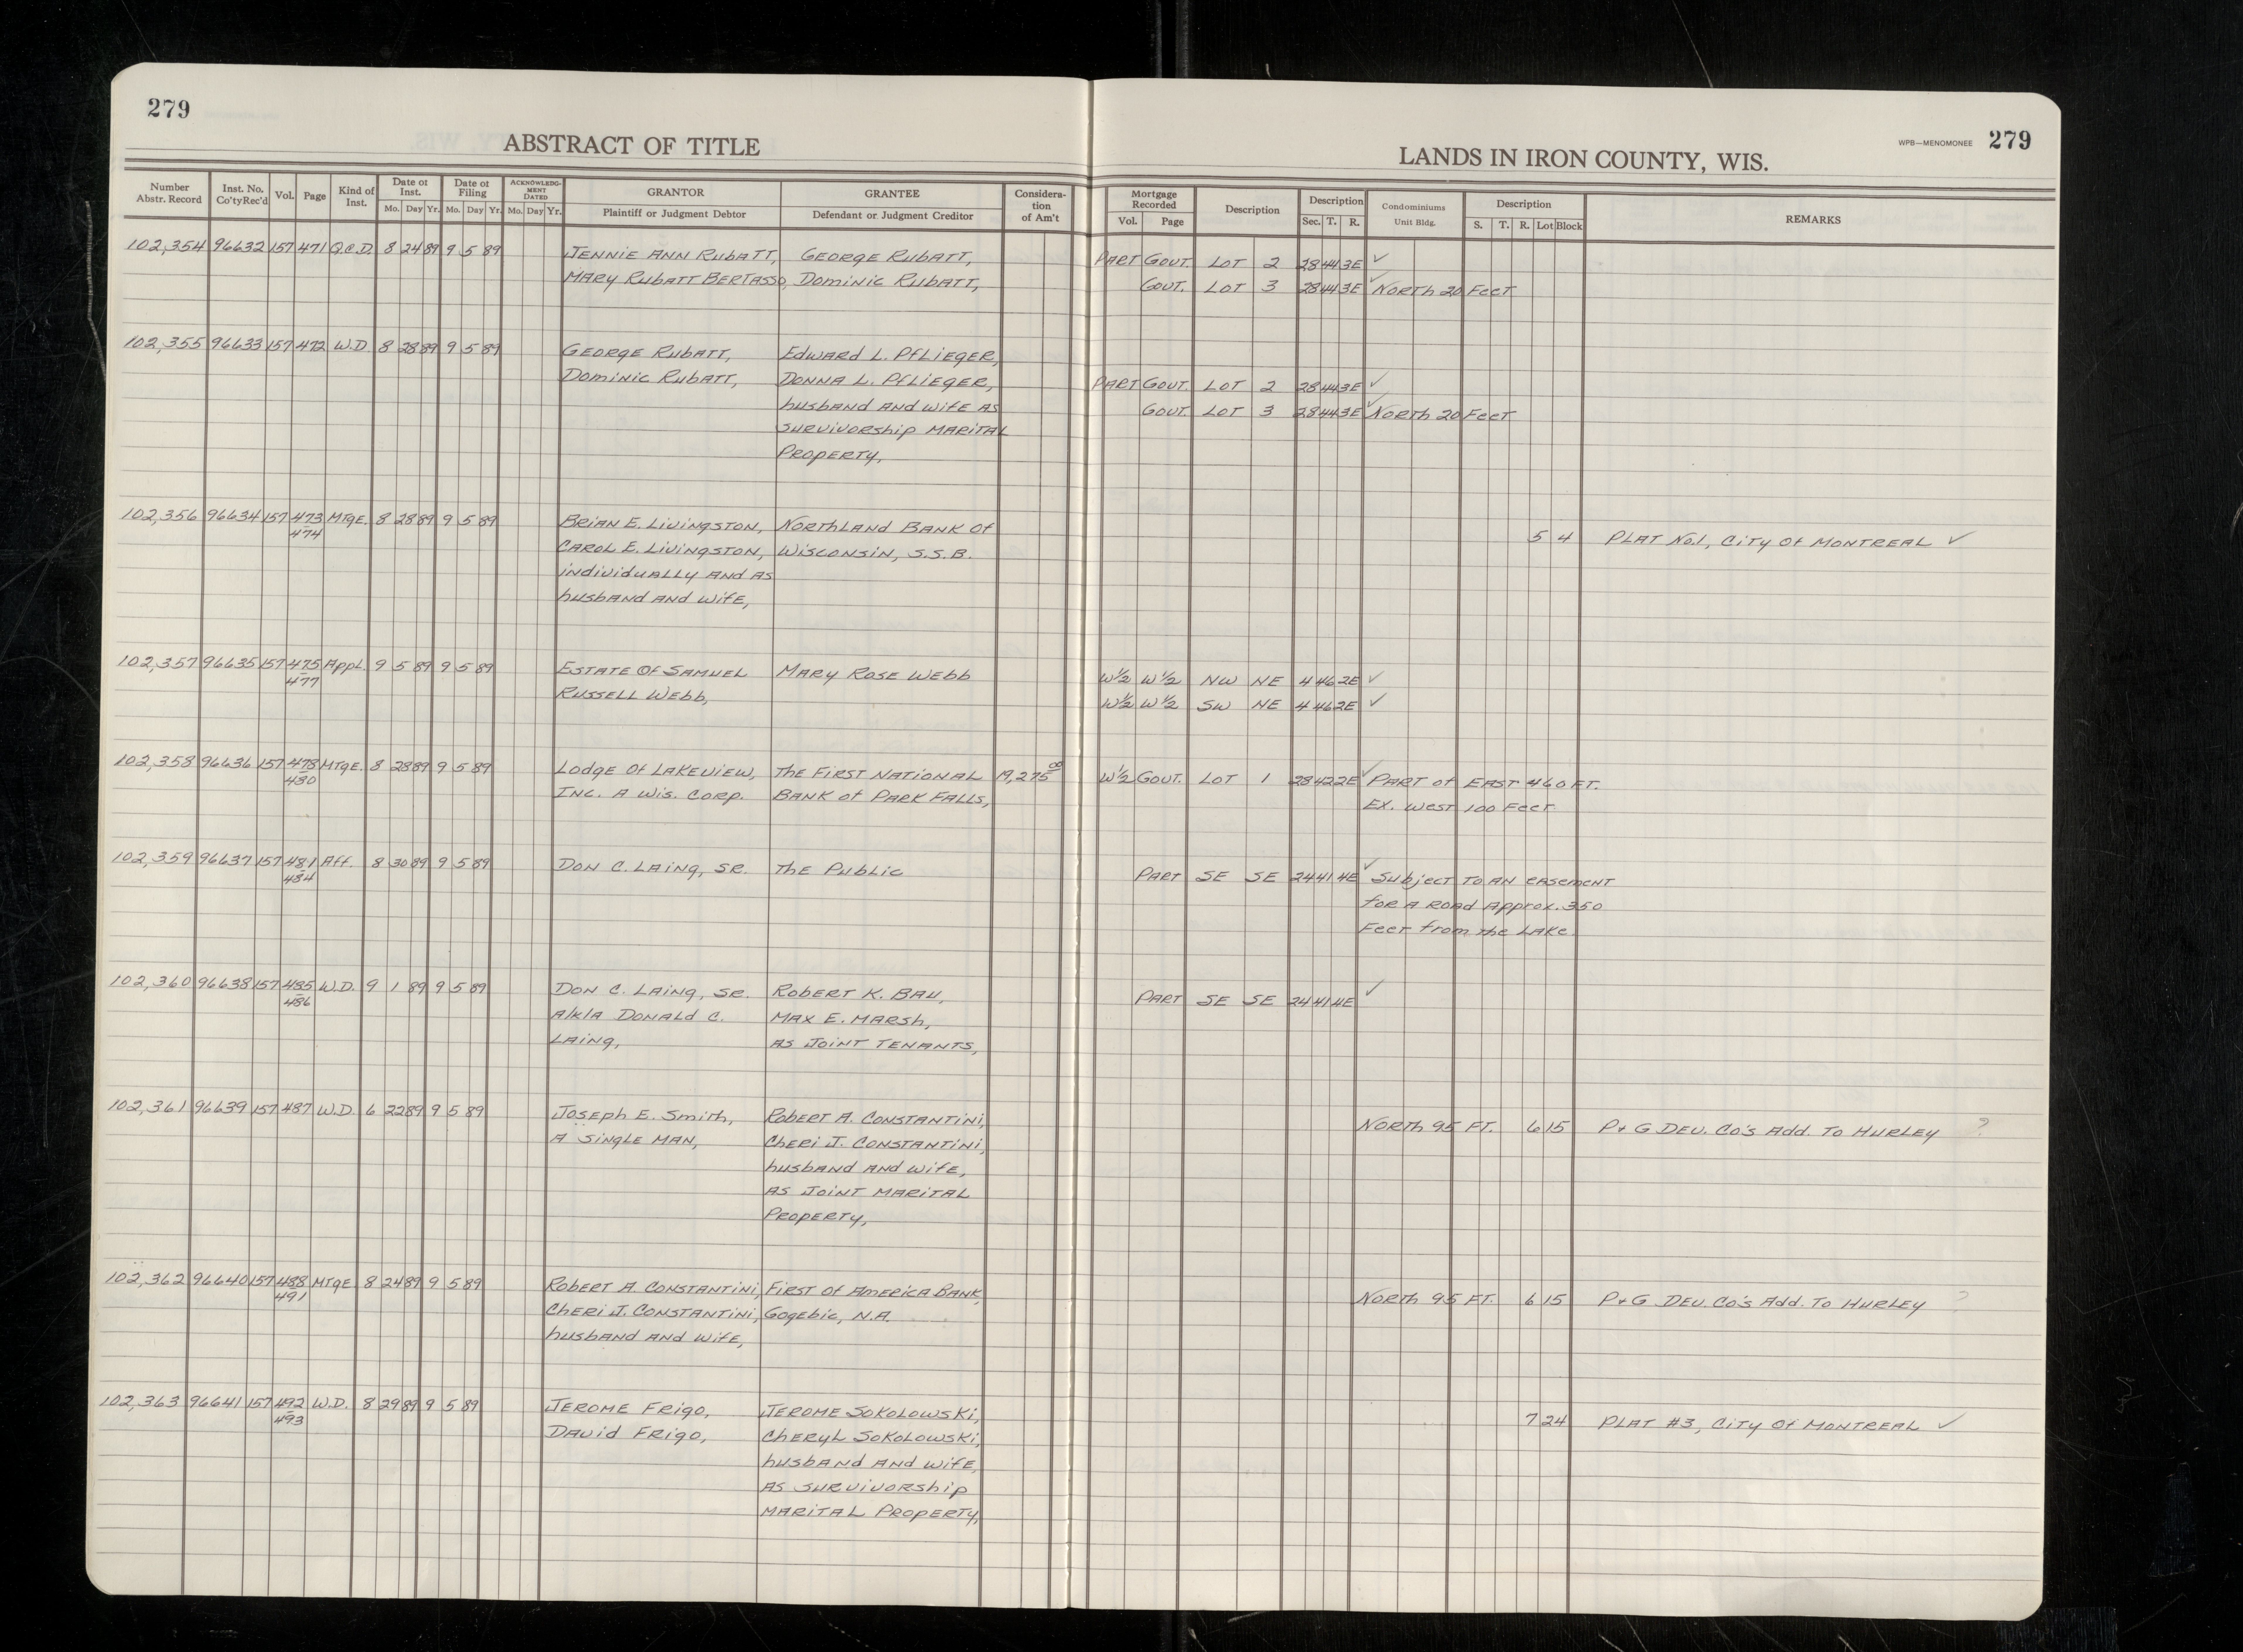 279
ABSTRACT OF TITLE
LANDS IN IRON COUNTY, WIS.
WPB—MENOMONEE 279
Number Abstr. Record | Inst. No. Co'ty Rec'd | Vol. | Page | Kind of Inst. | Date of Inst. Mo. Day Yr. | Date of Filing Mo. Day Yr. | ACKNOWLEDGMENT DATED Mo. Day Yr. | GRANTOR Plaintiff or Judgment Debtor | GRANTEE Defendant or Judgment Creditor | Consideration of Am't | Mortgage Recorded Vol. Page | Description | Description Sec. T. R. | Condominiums Unit Bldg. | Description S. T. R. Lot Block | REMARKS
102,354 96632 157 471 Q.C.D. 8 24 89 9 5 89 Jennie Ann Rubatt, George Rubatt, Part Gout. Lot 2 28 44 3E ✓
Mary Rubatt Bertasso, Dominic Rubatt, Gout. Lot 3 28 44 3E ✓ North 20 Feet
102,355 96633 157 472 W.D. 8 28 89 9 5 89 George Rubatt, Edward L. Pflieger,
Dominic Rubatt, Donna L. Pflieger, Part Gout. Lot 2 28 44 3E ✓
husband and wife as Gout. Lot 3 28 44 3E ✓ North 20 Feet
survivorship marital
property,
102,356 96634 157 473-474 Mtge. 8 28 89 9 5 89 Brian E. Livingston, Northland Bank of
Carol E. Livingston, Wisconsin, S.S.B. 5 4 Plat No.1, City of Montreal ✓
individually and as
husband and wife,
102,357 96635 157 475-477 Appl. 9 5 89 9 5 89 Estate of Samuel Mary Rose Webb W½ W½ NW NE 4 46 2E ✓
Russell Webb, W½ W½ SW NE 4 46 2E ✓
102,358 96636 157 478-480 Mtge. 8 28 89 9 5 89 Lodge of Lakeview, The First National 19,275.00 W½ Gout. Lot 1 28 42 2E ✓ Part of East 460 Ft.
Inc. A Wis. Corp. Bank of Park Falls, Ex. West 100 Feet
102,359 96637 157 481-484 Aff. 8 30 89 9 5 89 Don C. Laing, Sr. The Public Part SE SE 24 41 4E ✓ Subject to an easement
for a road approx. 350
Feet from the Lake
102,360 96638 157 485-486 W.D. 9 1 89 9 5 89 Don C. Laing, Sr. Robert K. Bau, Part SE SE 24 41 4E ✓
a/k/a Donald C. Max E. Marsh,
Laing, as joint tenants,
102,361 96639 157 487 W.D. 6 22 89 9 5 89 Joseph E. Smith, Robert A. Constantini, North 95 Ft. 6 15 P+G Dev. Co's Add. To Hurley ?
a single man, Cheri J. Constantini,
husband and wife,
as joint marital
property,
102,362 96640 157 488-491 Mtge. 8 24 89 9 5 89 Robert A. Constantini, First of America Bank, North 95 Ft. 6 15 P+G Dev. Co's Add. To Hurley ?
Cheri J. Constantini, Gogebic, N.A.
husband and wife,
102,363 96641 157 492-493 W.D. 8 29 89 9 5 89 Jerome Frigo, Jerome Sokolowski, 7 24 Plat #3, City of Montreal ✓
David Frigo, Cheryl Sokolowski,
husband and wife,
as survivorship
marital property,